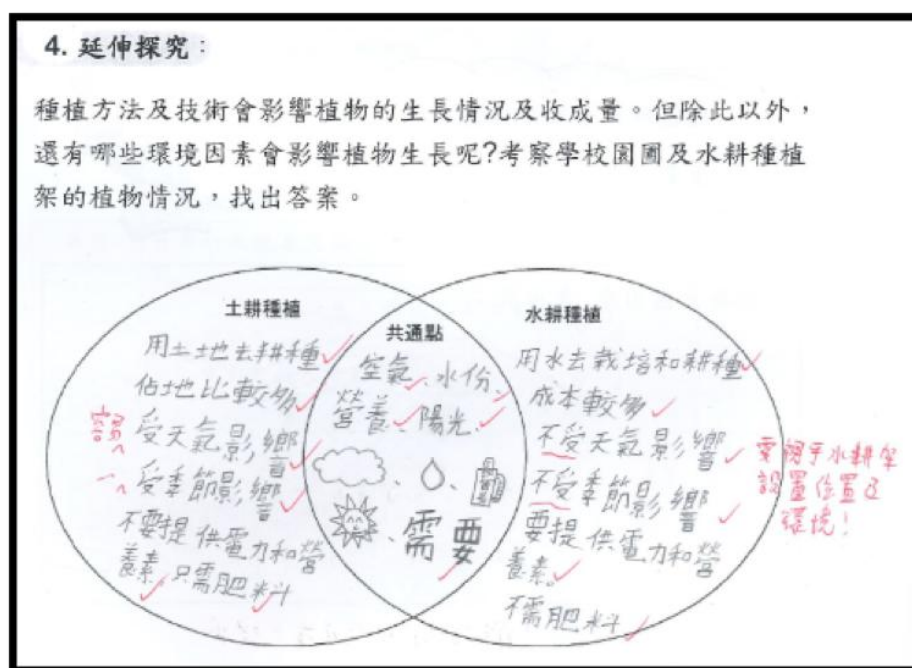 4. 延伸探究：
種植方法及技術會影響植物的生長情況及收成量。但除此以外，
還有哪些環境因素會影響植物生長呢?考察學校園圃及水耕種植
架的植物情況，找出答案。
土耕種植
用土地去耕種
佔地比較多
容易
受天氣影響
受季節影響
不要提供電力和營
養素。只需肥料
共通點
空氣、水份、
營養、陽光、
需要
水耕種植
用水去栽培和耕種
成本較多
不受天氣影響
不受季節影響
要提供電力和營
養素。
不需肥料
要視乎水耕架
設置位置及
環境！